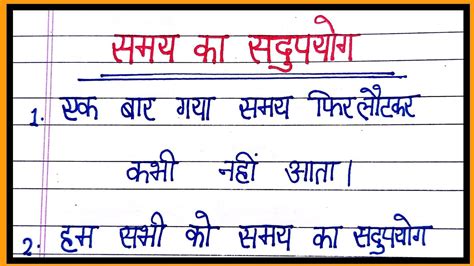 समय का सदुपयोग
1. एक बार गया समय फिर लौटकर
कभी नहीं आता।
2. हम सभी को समय का सदुपयोग